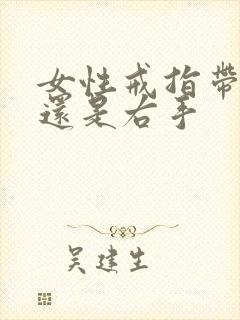 女性戒指帶
還是右手
吴建生